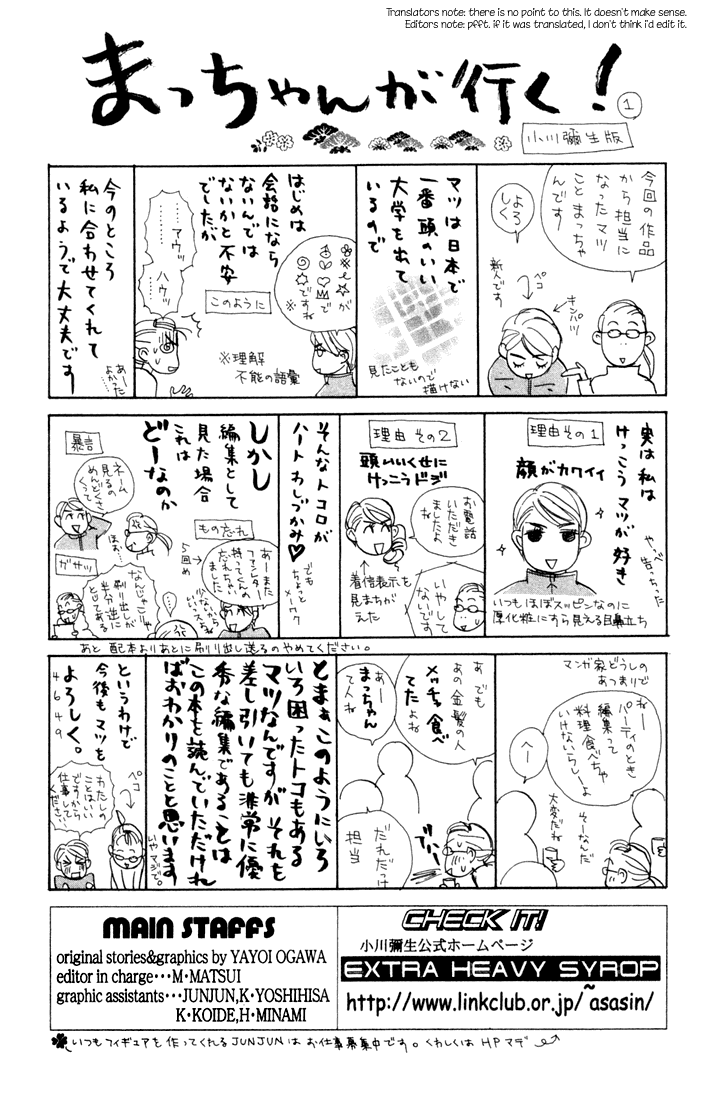 Translators note: there is no point to this. It doesn't make sense.
Editors note: pfft. if it was translated, I don't think i'd edit it.
まっちゃんが行く！
1
小川彌生版
今回の作品
から担当に
なったマツ
ことまっちゃ
んです
よろ
しく
新人です
ペコ
キンパツ
マツは日本で
一番頭のいい
大学を出て
いるので
見たことも
ないので
描けない
はじめは
会話になら
ないんでは
ないかと不安
でしたが
このように
が
で
ですね
※理解
不能の語彙
……アウッ
ハウッ
今のところ
私に合わせてくれて
いるようで大丈夫です
あー
よかった
実は私は
けっこうマツが好き
やべ
告っちった
理由その1
顔がカワイイ
いつもほぼスッピンなのに
厚化粧にすら見える目鼻立ち
理由その2
頭いいくせに
けっこうドジ
お電話
いただき
ましたよ
ね
いや して
ないです
着信表示を
見まちが
えた
そんなトコロが
ハートわしづかみ♡
でも
ちょっと
メーワク
しかし
編集として
見た場合
これは
どーなのか
もの忘れ
5回め
あーまた
ファンレター
持ってくんの
忘れちゃい
ました
暴言
ネーム
見るの
めんどくさ
くって
ほお…
ガサツ
なんじゃこりゃ
刷り出しが
半分 逆に
とじてある
あと 配本よりあとに刷り出し送るのやめてください。
マンガ家どうしの
あつまりで
ねー
パーティのとき
編集って
料理食べちゃ
いけないらしいよ
へー
そーなんだ
大変だね
あ でも
あの金髪の人
メッチャ食べ
てたよね
あー
まっちゃん
て人ね
だれだっけ
担当
とまぁこのようにいろ
いろ困ったトコもある
マツなんですが それを
差し引いても非常に優
秀な編集であることは
この本を読んでいただけれ
ばおわかりのことと思います
いや マジで。
というわけで
今後もマツを
よろしく。
4649
ペコ
わたしの
ことはいい
ですから
仕事して
ください
MAIN STAFFS
original stories&graphics by YAYOI OGAWA
editor in charge･･･M･MATSUI
graphic assistants･･･JUNJUN,K･YOSHIHISA
K･KOIDE,H･MINAMI
CHECK IT!
小川彌生公式ホームページ
EXTRA HEAVY SYROP
http://www.linkclub.or.jp/~asasin/
いつもフィギュアを作ってくれるJUNJUNは お仕事募集中です。くわしくはHPマデ